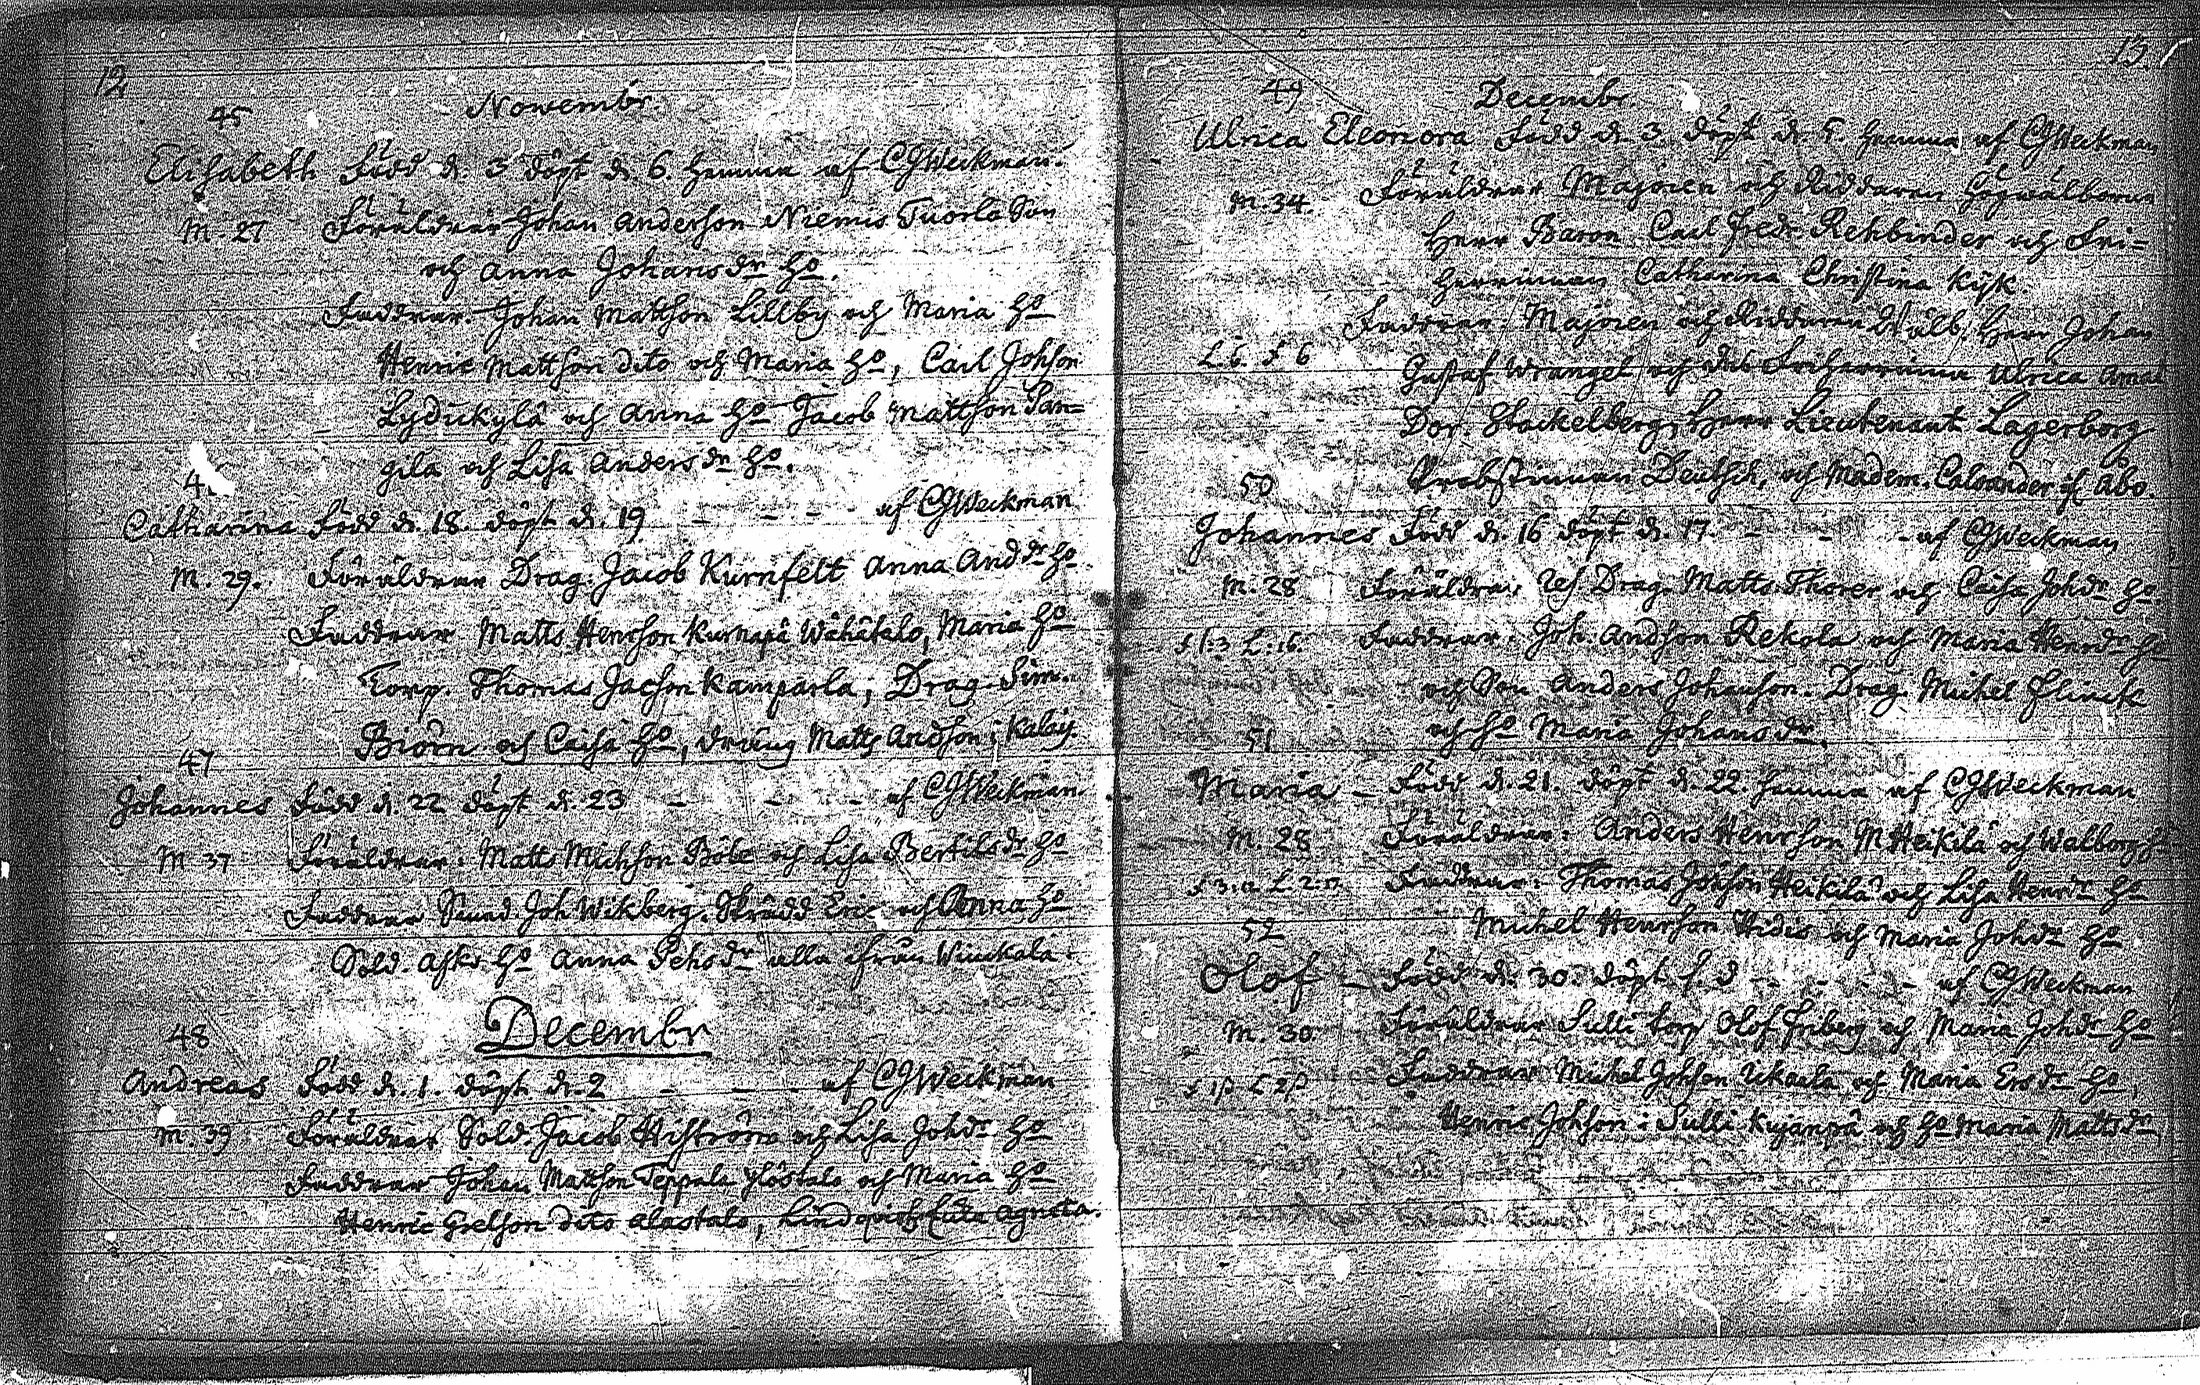 12
45 Novembr
Elisabeth Född d. 3 döpt d. 6. hemma af CGWeckman.
M. 27 Föräldrar Johan Anderson Niemis Tuorla Son
och Anna Johansdr ho.
Faddrar. Johan Mattson Lillby och Maria ho
Henric Mattson dito och Maria ho, Carl Johson
Lydickylä och Anna ho Jacob Mattson Pan=
gila och Lisa Andersdr ho.
Catharina Född d. 18. döpt d. 19 - - - af CGWeckman
M. 29. Föräldrar Drag. Jacob Kurnfelt Anna Anddr ho.
Faddrar Matts Henrson Kurnapä Wähätalo, Maria ho
Torp. Thomas Jacson Kamparla, Drag. Sim.
Biörn och Caisa ho, dräng Matts Andson i
47
Johannes Född d. 22 döpt d. 23 - - - af CGWeckman.
M 37 Föräldrar. Matts Michson Böte och Lisa Bertilsdr ho
Faddrar Smed. Joh Wikberg. Skrädd Eric och Anna ho
Sold. ho Anna alla ifrån
48 Decembr
Andreas Född d. 1. döpt d. 2 - - af CGWeckman
M. 39 Föräldrar Sold. Jacob Hiström och Lisa Johdr ho
Faddrar Johan Mattson Teppala Ylöstalo och Maria ho
Henric Grelson dito Alastalo, Lindqvist Agneta.
13.
49 Decembr.
Ulrica Eleonora Född d. 3 döpt d. 5. hemma af CGWeckman
M. 34. Föräldrar Majoren och Riddaren Högwälborne
Herr Baron Carl Fredr Rehbinder och Fri=
herrinnan Catharina Christina Kijk.
Faddrar. Majoren och Riddaren Herr Johan
L. 6. F 6 Gustaf Wrangel och Friherrinna Ulrica Amal
Dor. Stackelberg, Herr Lieutenant Lagerborg
50 Probstinnan Deutsch, och Madem. Åbo.
Johannes Född d. 16 döpt d. 17. - - - af CGWeckman
M. 28 Föräldrar. Drag. Matts Thorer och Caisa Johdr ho
F 1:3 L:16. Faddrar. Joh. Andson Rekola och Maria Henrdr ho
och Son Anders Johanson. Drag. Michel Flinck
51 och ho Maria Johansdr.
Maria - Född d. 21. döpt d. 22. hemma af CGWeckman
M. 28 Föräldrar: Anders Henrson M Heikilä och Walborg ho
Faddrar: Thomas Heikilä och Lisa Henrdr ho
52 Michel Henrson Hidis och Maria Johdr ho
Olof - Född d. 30. döpt s. d - - - - af CGWeckman
M. 30. Föräldrar Sulli torp Olof Friberg och Maria Johdr ho
Faddrar Michel Johson Ukaela och Maria Ersdr ho,
Henric Johson i Sulli Kujanpä och ho Maria Mattsdr